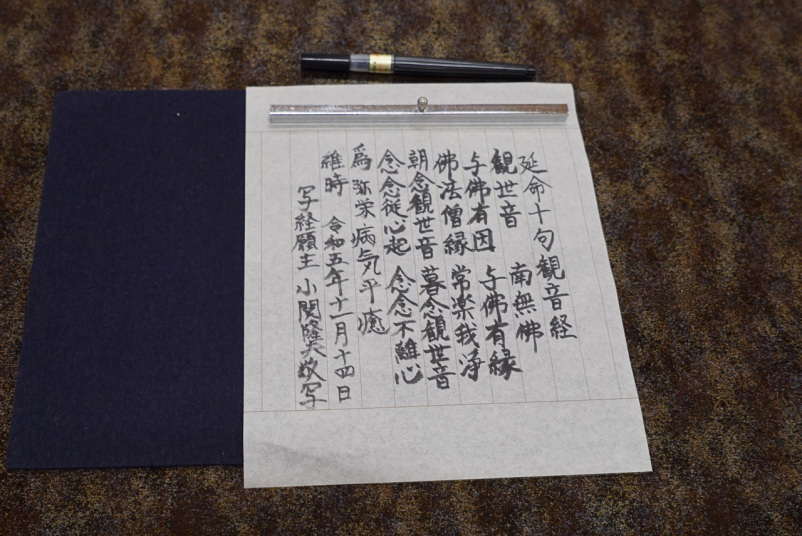 延命十句観音経
観世音 南無佛
与佛有因 与佛有縁
佛法僧縁 常楽我浄
朝念観世音 暮念観世音
念念従心起 念念不離心
為 弥栄病気平癒
維時 令和五年十一月十四日
写経願主 小関隆大敬写